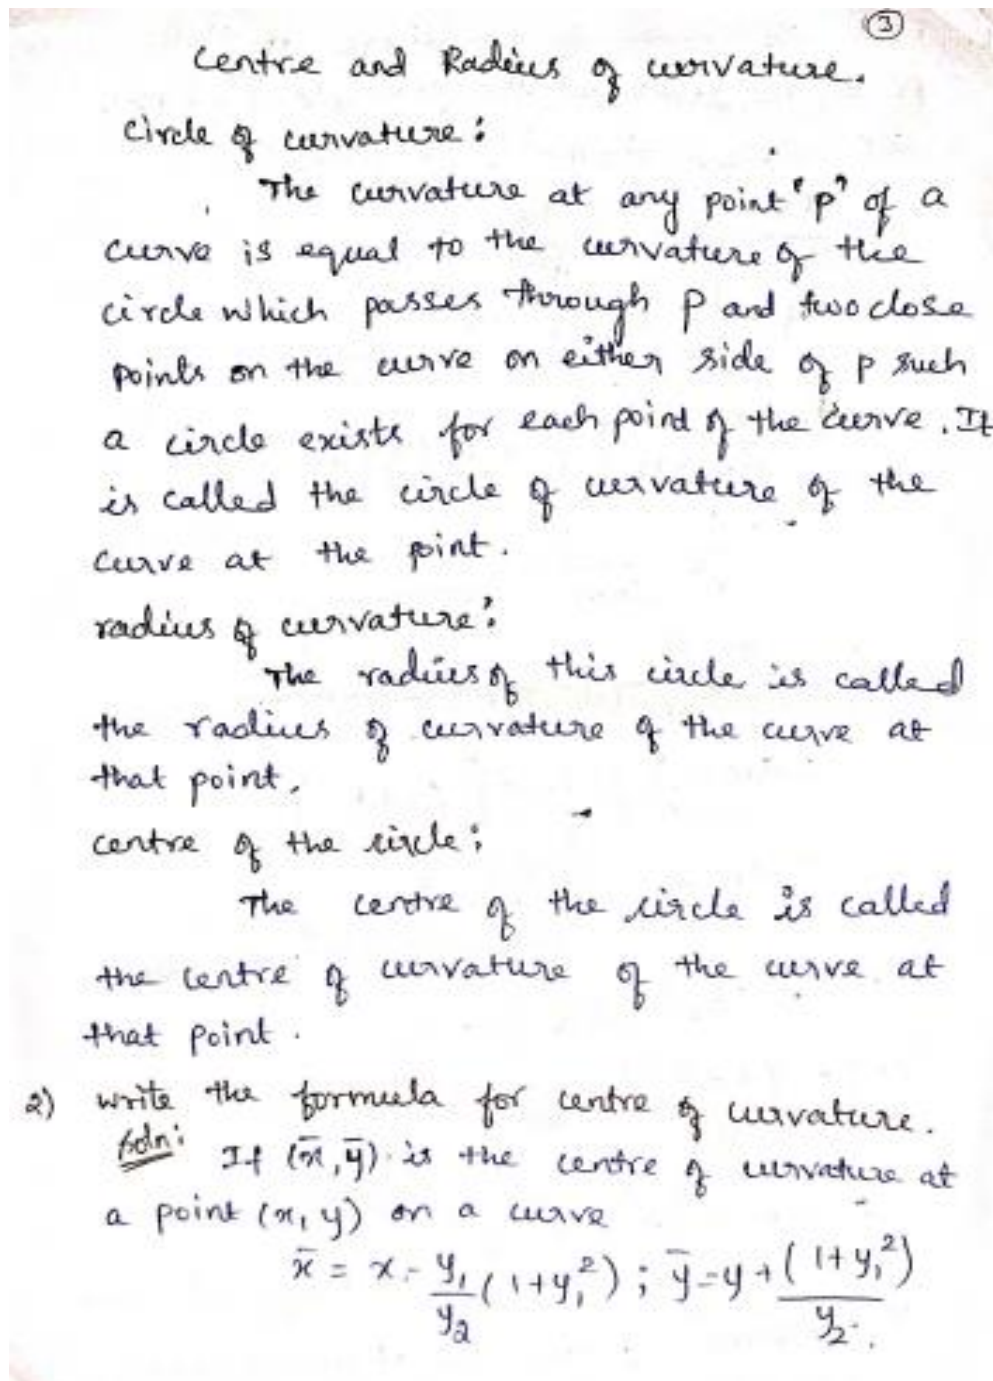 ③
Centre and Radius of curvature.
Circle of curvature:
The curvature at any point 'p' of a
curve is equal to the curvature of the
circle which passes through P and two close
points on the curve on either side of p such
a circle exists for each point of the curve. It
is called the circle of curvature of the
curve at the point.
radius of curvature:
The radius of this circle is called
the radius of curvature of the curve at
that point.
centre of the circle:
The centre of the circle is called
the centre of curvature of the curve at
that point.
2) write the formula for centre of curvature.
Soln: If (x̄, ȳ) is the centre of curvature at
a point (x, y) on a curve
x̄ = x - y₁/y₂ (1+y₁²); ȳ = y + (1+y₁²)/y₂.